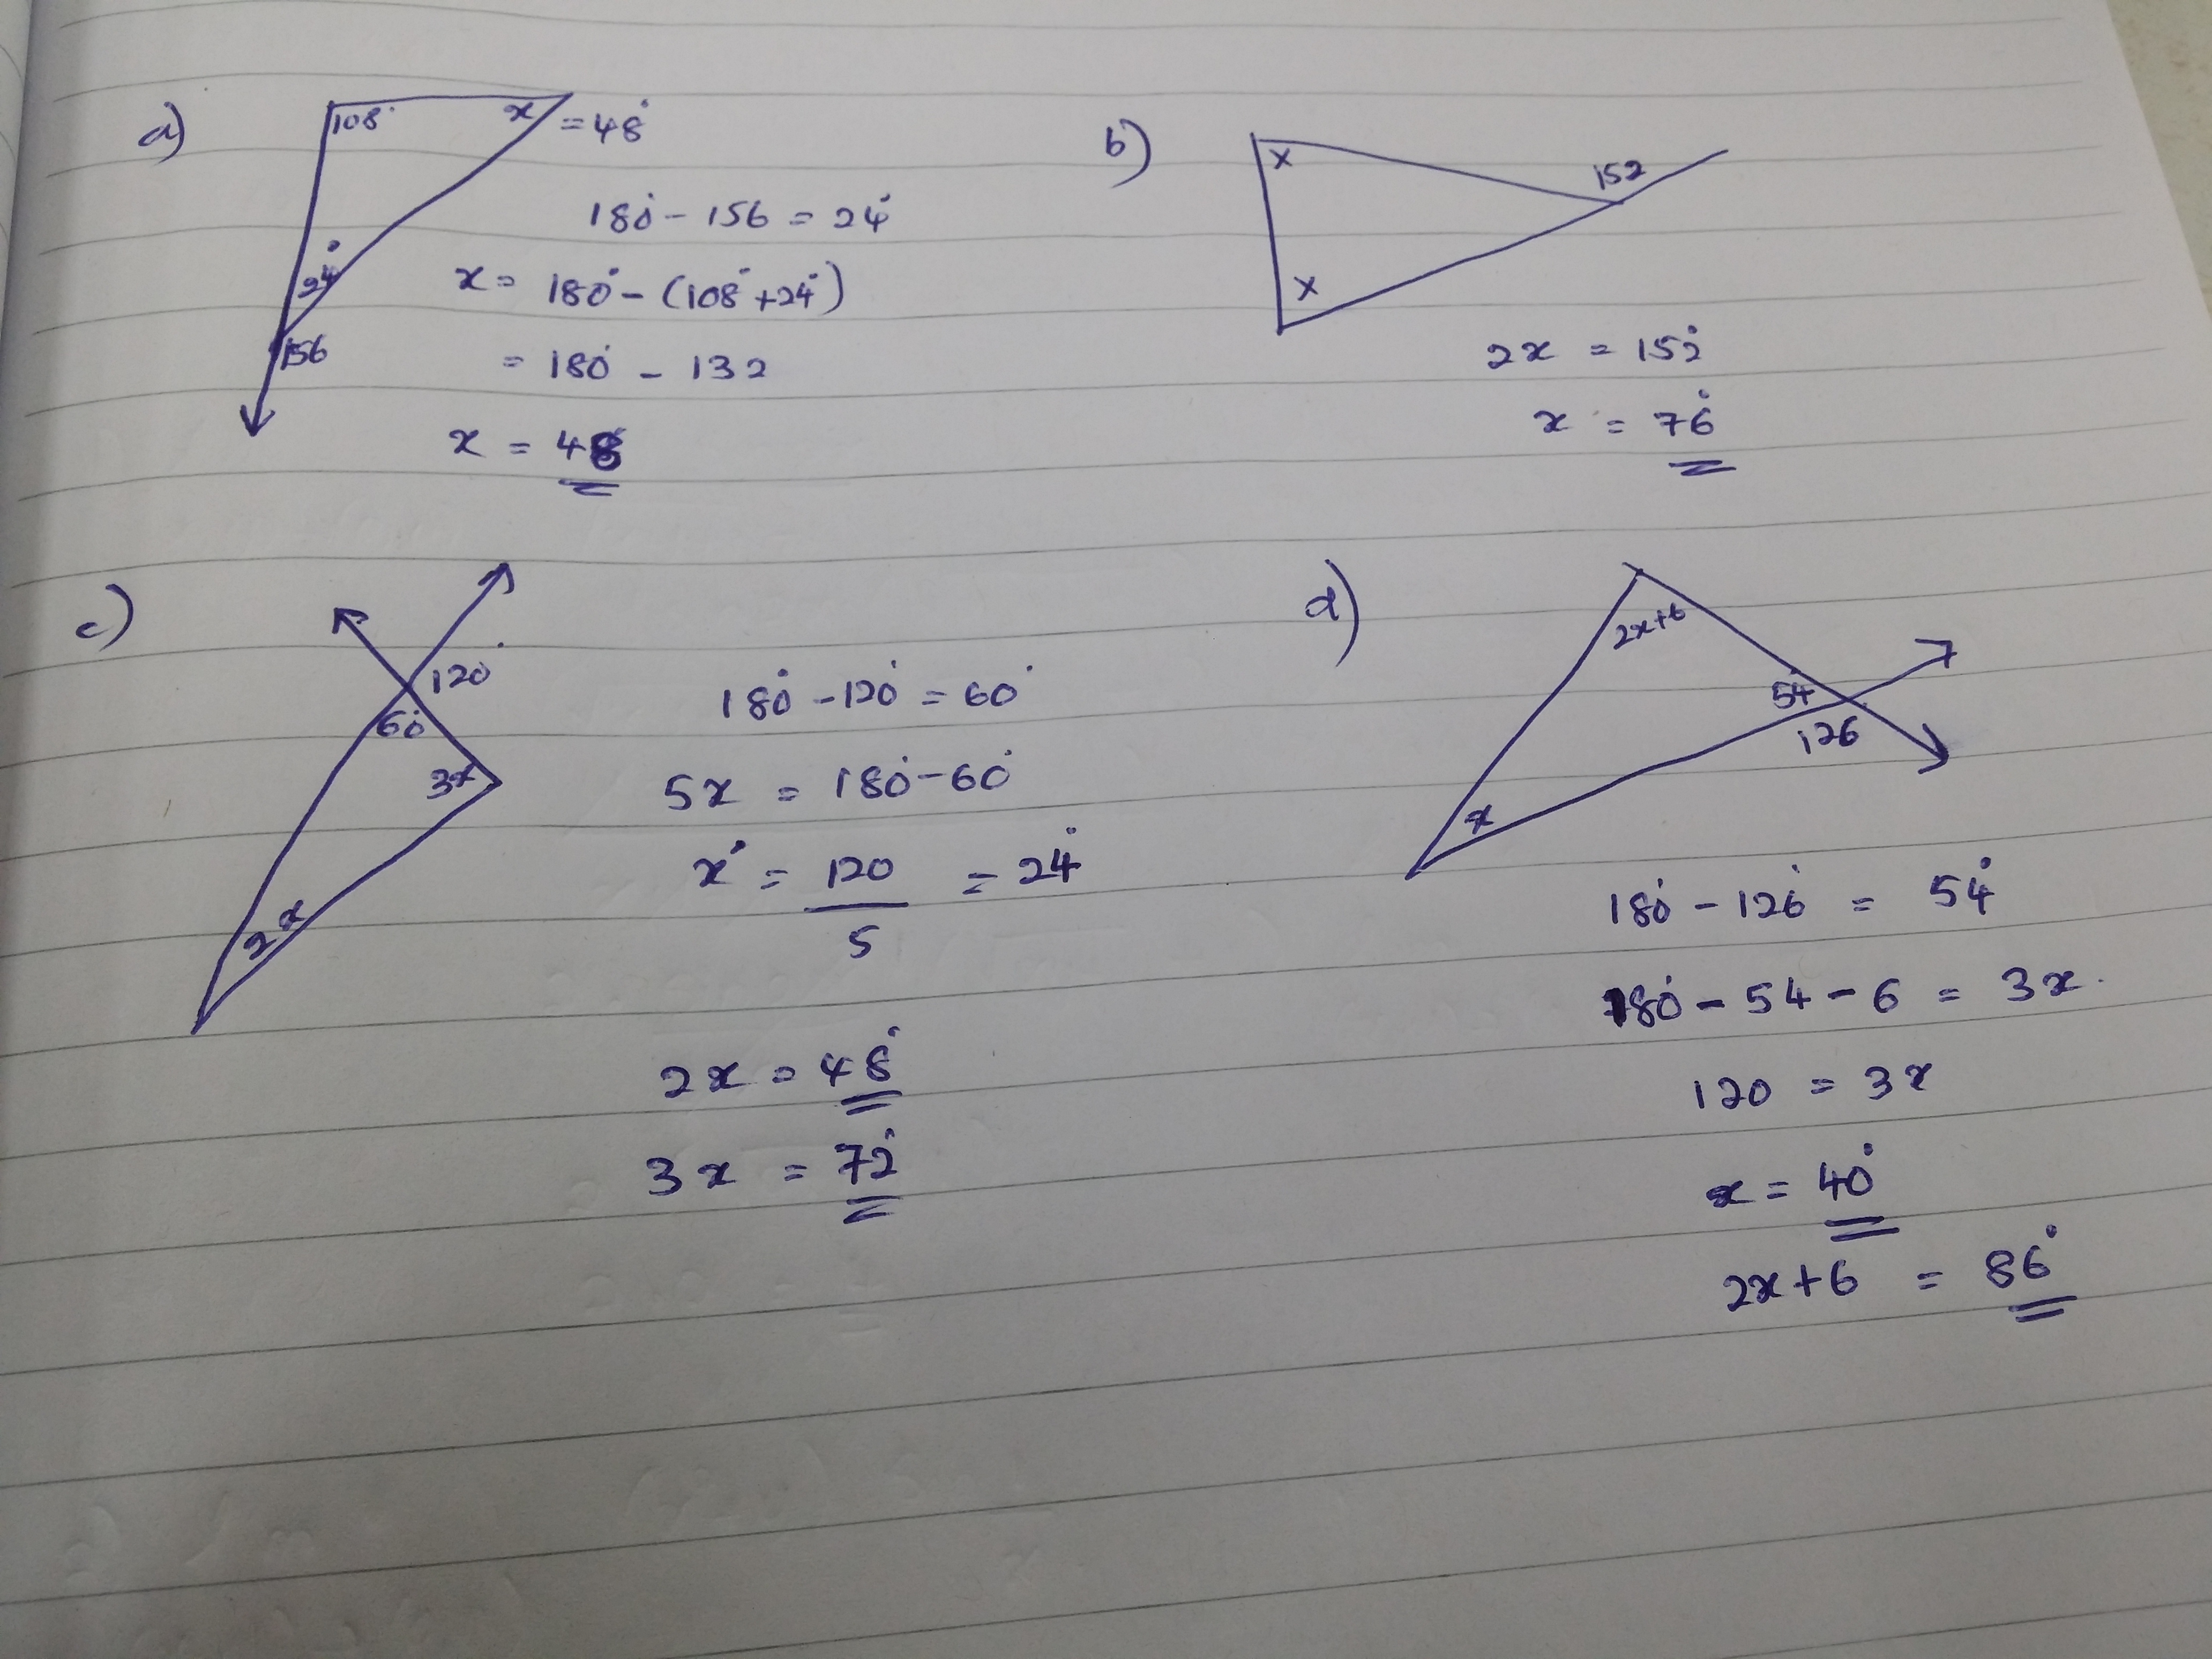 a)
108°
x = 48°
24°
156
180° - 156 = 24°
x = 180° - (108° + 24°)
= 180° - 132
x = 48
b)
x
152
x
2x = 152°
x = 76°
c)
120°
60°
3x
2x
180° - 120° = 60°
5x = 180° - 60°
x° = 120/5 = 24°
2x = 48°
3x = 72°
d)
2x+6
54
126
x
180° - 126° = 54°
180° - 54 - 6 = 3x.
120 = 3x
x = 40°
2x+6 = 86°